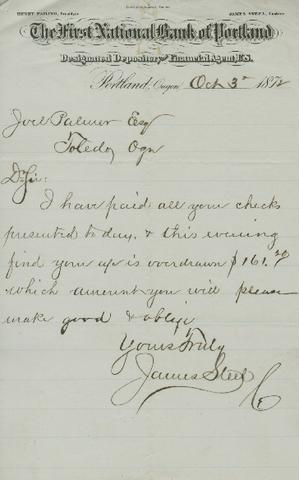 HENRY FAILING, President
JAMES STEEL, Cashier
The First National Bank of Portland
Designated Depository and Financial Agent, U.S.
Portland, Oregon, Oct 3d 1872
Joel Palmer Esq
Toledo, Ogn
D Sir:
I have paid all your checks
presented to day, & this evening
find your a/c is overdrawn $161.
which amount you will please
make good & oblige
Yours Truly
James Steel
C